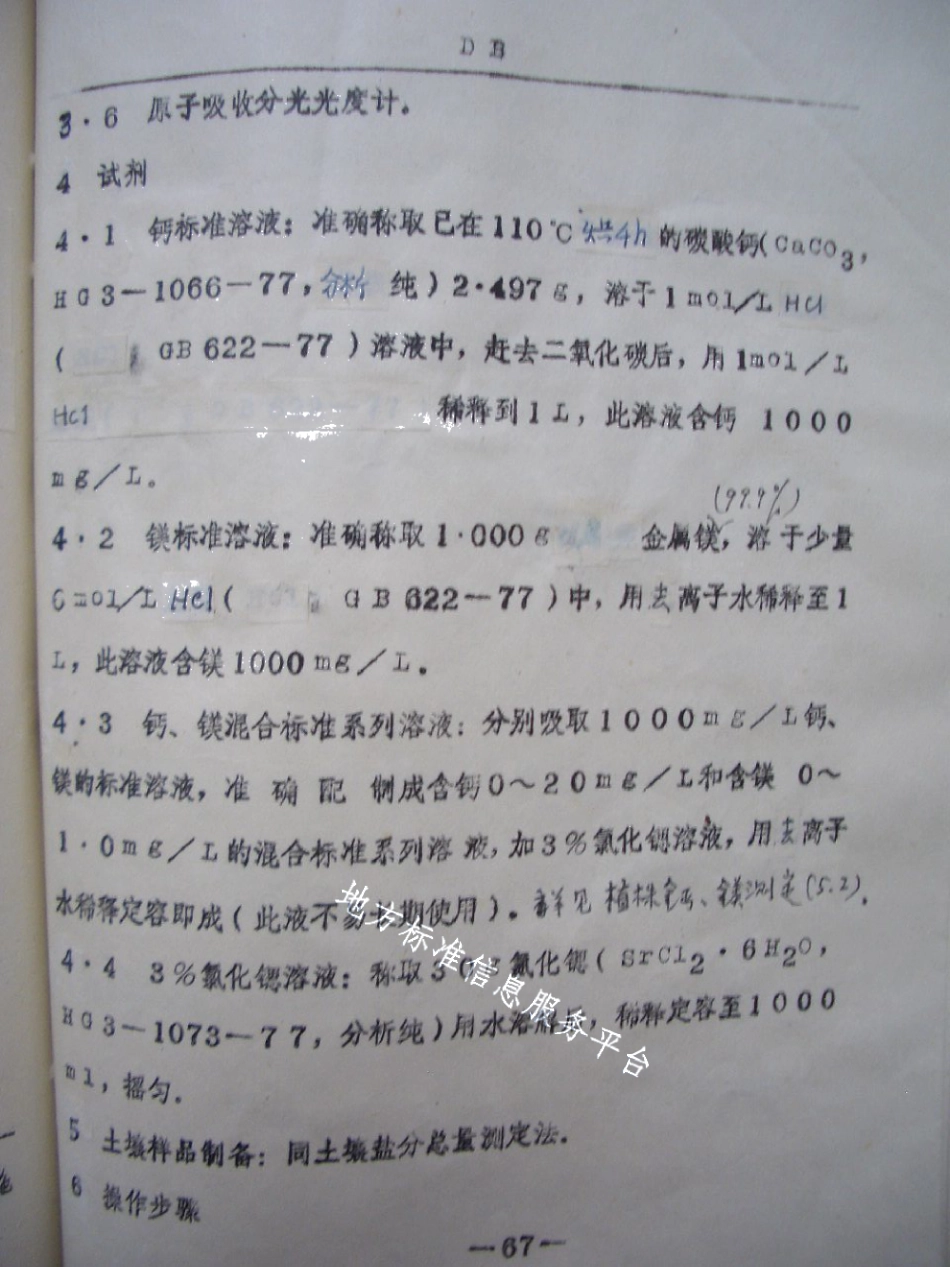 DB
3·6 原子吸收分光光度计。
4 试剂
4·1 钙标准溶液：准确称取已在110℃烘4h的碳酸钙(CaCO₃,
HG3—1066—77，分析纯）2·497g，溶于1mol/L HCl
( GB 622—77）溶液中，赶去二氧化碳后，用1mol/L
Hcl 稀释到1L，此溶液含钙 1000
mg/L。
(99.9%)
4·2 镁标准溶液：准确称取1·000g 金属镁，溶于少量
6mol/L Hcl ( GB 622—77）中，用去离子水稀释至1
L，此溶液含镁1000mg/L。
4·3 钙、镁混合标准系列溶液：分别吸取1000mg/L钙、
镁的标准溶液，准确配制成含钙0～20mg/L和含镁 0～
1·0mg/L的混合标准系列溶液，加3%氯化锶溶液，用去离子
水稀释定容即成（此液不易长期使用）。详见植株钙、镁测定(5.2).
4·4 3%氯化锶溶液：称取3 g氯化锶（SrCl₂·6H₂O，
HG3—1073—77，分析纯）用水溶 ，稀释定容至1000
ml，摇匀.
5 土壤样品制备：同土壤盐分总量测定法.
6 操作步骤
—67—
地方标准信息服务平台